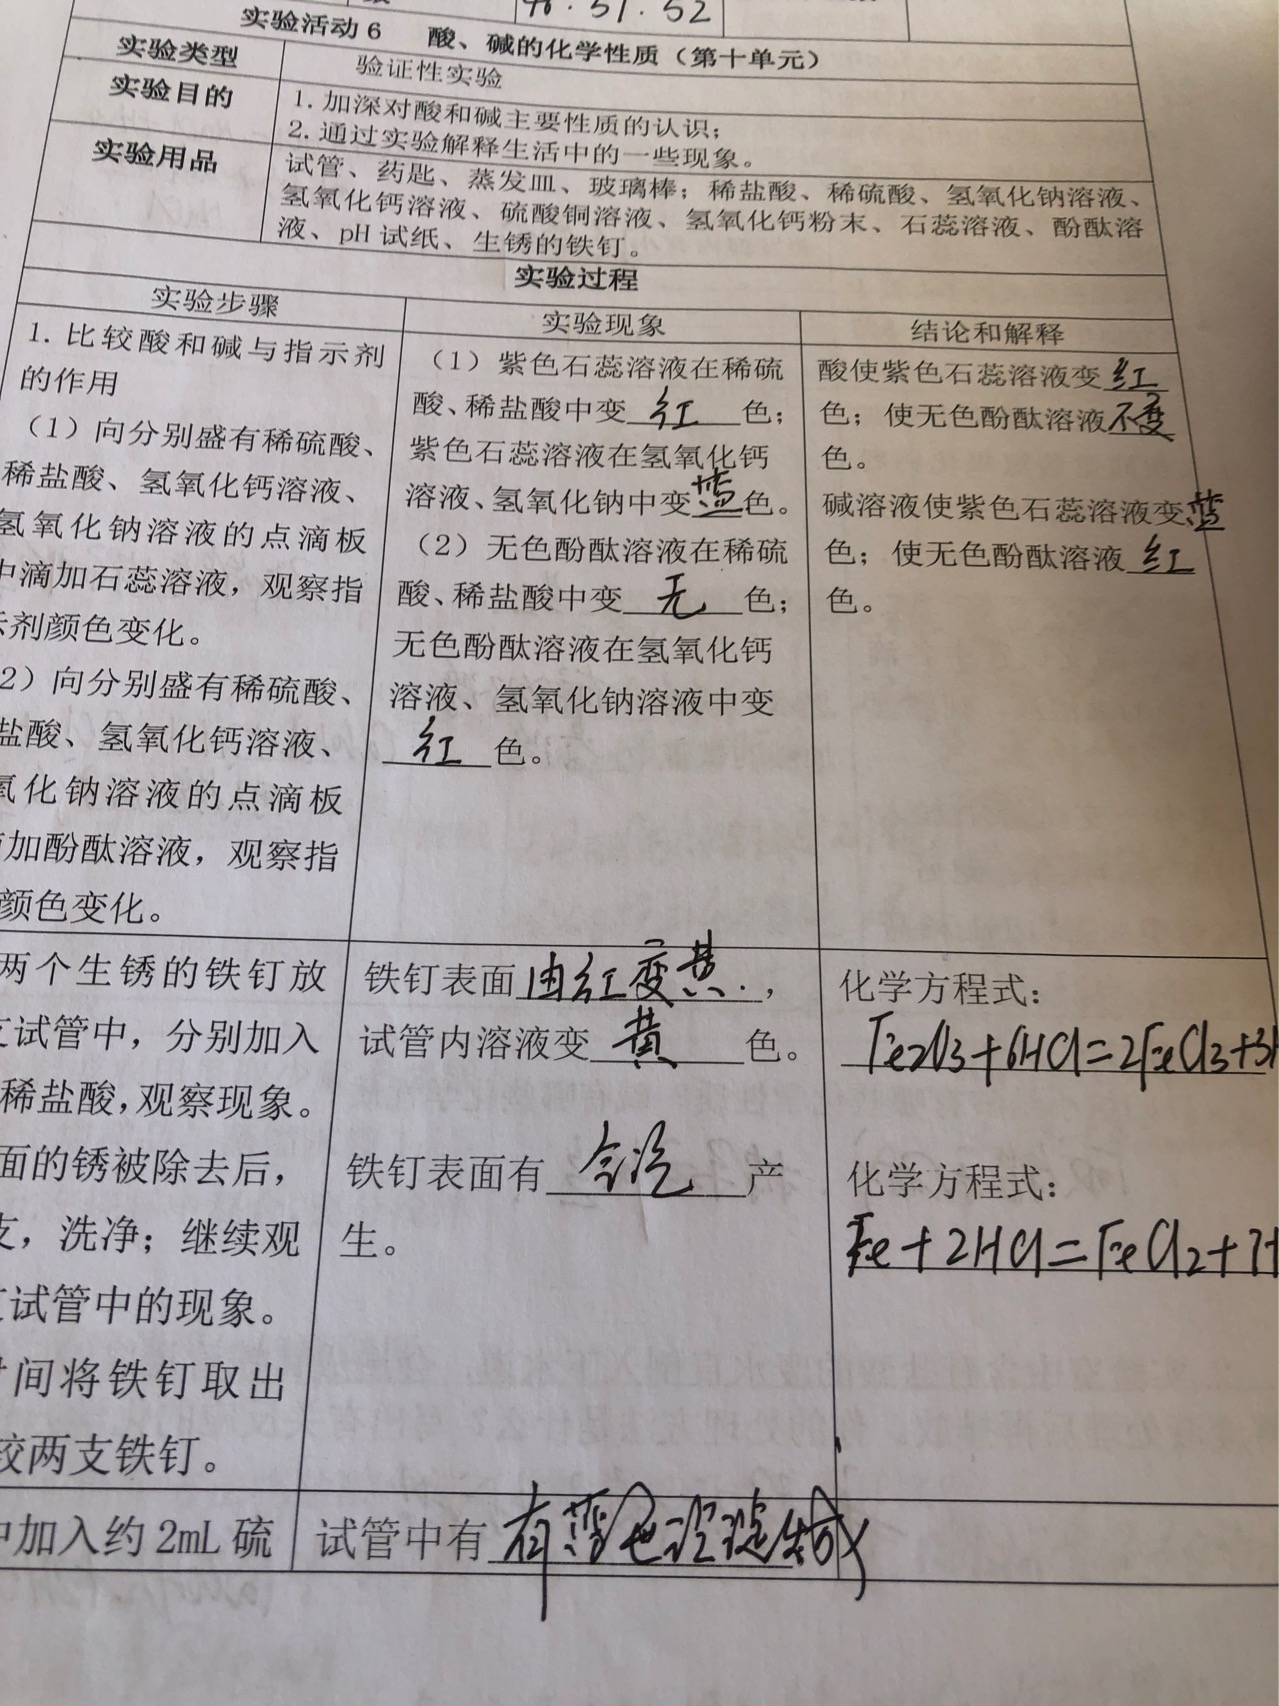 48.51.52
实验活动6 酸、碱的化学性质（第十单元）
实验类型 验证性实验
实验目的 1.加深对酸和碱主要性质的认识；
2.通过实验解释生活中的一些现象。
实验用品 试管、药匙、蒸发皿、玻璃棒；稀盐酸、稀硫酸、氢氧化钠溶液、
氢氧化钙溶液、硫酸铜溶液、氢氧化钙粉末、石蕊溶液、酚酞溶
液、pH试纸、生锈的铁钉。
实验过程
实验步骤 实验现象 结论和解释
1.比较酸和碱与指示剂
的作用
（1）向分别盛有稀硫酸、
稀盐酸、氢氧化钙溶液、
氢氧化钠溶液的点滴板
中滴加石蕊溶液，观察指
示剂颜色变化。
2）向分别盛有稀硫酸、
盐酸、氢氧化钙溶液、
氧化钠溶液的点滴板
加酚酞溶液，观察指
颜色变化。
（1）紫色石蕊溶液在稀硫
酸、稀盐酸中变红色；
紫色石蕊溶液在氢氧化钙
溶液、氢氧化钠中变蓝色。
（2）无色酚酞溶液在稀硫
酸、稀盐酸中变无色；
无色酚酞溶液在氢氧化钙
溶液、氢氧化钠溶液中变
红色。
酸使紫色石蕊溶液变红
色；使无色酚酞溶液不变
色。
碱溶液使紫色石蕊溶液变蓝
色；使无色酚酞溶液红
色。
两个生锈的铁钉放
试管中，分别加入
稀盐酸，观察现象。
面的锈被除去后，
支，洗净；继续观
试管中的现象。
间将铁钉取出
较两支铁钉。
铁钉表面由红变黄，
试管内溶液变黄色。
铁钉表面有气泡产
生。
化学方程式：
Fe2O3+6HCl=2FeCl3+3H
化学方程式：
Fe+2HCl=FeCl2+H
中加入约2mL硫
试管中有有蓝色沉淀生成